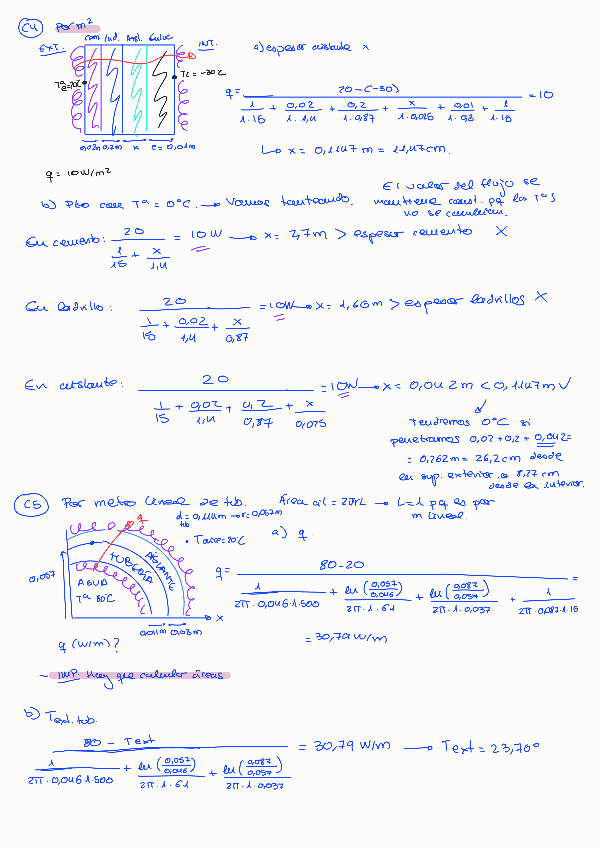 C4 Por m²
EXT. Cem. Lad. Aisl. INT.
Te=-30ºC
0,02m 0,2m x e=0,01m
q = 10 W/m²
a) espesor aislante x
q = (20-(-30)) / (1/(1·15) + 0,02/(1·1,4) + 0,2/(1·0,87) + x/(1·0,075) + 0,01/(1·93) + 1/(1·15)) = 10
↳ x = 0,1147 m = 11,47 cm.
b) Pto con Tª = 0ºC. → Vamos tanteando.
El valor del flujo se
mantiene const. pq las Tªs
no se cambian.
En cemento: 20 / (1/15 + x/1,4) = 10 W → x = 2,7m > espesor cemento X
En ladrillo: 20 / (1/15 + 0,02/1,4 + x/0,87) = 10W → x = 1,60m > espesor ladrillos X
En aislante: 20 / (1/15 + 0,02/1,4 + 0,2/0,87 + x/0,075) = 10W → x = 0,042m < 0,1147m √
Tendremos 0ºC si
penetramos 0,02+0,2+0,042=
= 0,262m = 26,2cm desde
la sup. exterior o 8,27cm
desde la interior.
C5 Por metro lineal de tub. Área cil = 2πrL → L=1 pq es por
m lineal.
d = 0,114m → r = 0,057m
tub
• Taire=20ºC
a) q
0,057
TUBERÍA
AISLANTE
AGUA
Tª 80ºC
x
0,011m 0,03m
q = (80-20) / (1/(2π·0,046·1.500) + ln(0,057/0,046)/(2π·1·61) + ln(0,087/0,057)/(2π·1·0,037) + 1/(2π·0,087·1·15)) =
= 30,79 W/m
q (W/m)?
- IMP. Hay que calcular áreas
b) Text. tub.
(80 - Text) / (1/(2π·0,046·1.500) + ln(0,057/0,046)/(2π·1·61) + ln(0,087/0,057)/(2π·1·0,037)) = 30,79 W/m → Text = 23,70º